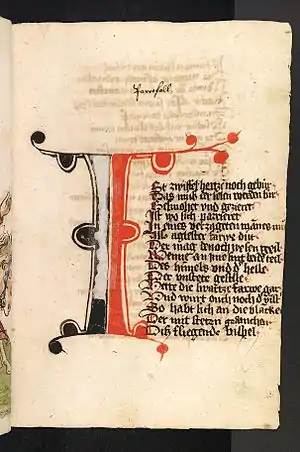 Parcifall
St zwifel hertze noch gebur
Das mus der selen werden sur
Geschmehet vnd gezieret
Ist wo sich parrieret
In eines verzagten mannes mut
Als agelster farwe dut
Der mag dennoch wesen geil
Wenne an jme sint beide teil
Des himels vnd der helle
Der vnstete geselle
Hette die swartze farwe gar
Vnd wirt ouch noch der
So habt sich an die blancke
Der mit steten gedancken
Dis fliegende bispel